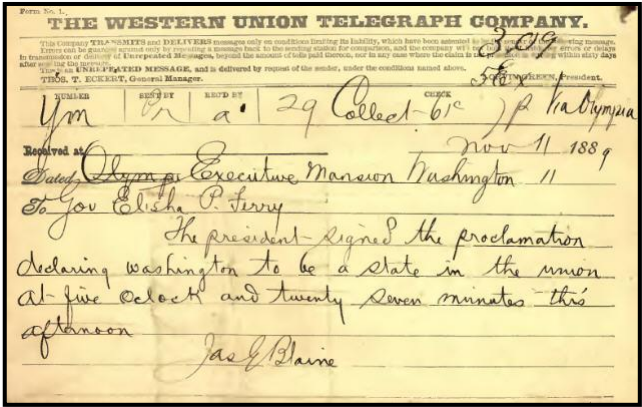 Form No. 1.
THE WESTERN UNION TELEGRAPH COMPANY.
This Company TRANSMITS and DELIVERS messages only on conditions limiting its liability, which have been assented to by the sender of the following message.
Errors can be guarded against only by repeating a message back to the sending station for comparison, and the company will not be liable for errors or delays
in transmission or delivery of Unrepeated Messages, beyond the amount of tolls paid thereon, nor in any case where the claim is not presented in writing within sixty days
after sending the message.
This is an UNREPEATED MESSAGE, and is delivered by request of the sender, under the conditions named above.
THOS. T. ECKERT, General Manager. NORVIN GREEN, President.
309
NUMBER SENT BY REC'D BY CHECK
Ym Pr a. 29 Collect 61c Via Olympia
Received at Nov 11 1889
Dated Executive Mansion Washington 11
To Gov Elisha P. Ferry
The president signed the proclamation
declaring washington to be a state in the union
at five oclock and twenty seven minutes this
afternoon
Jas G Blaine